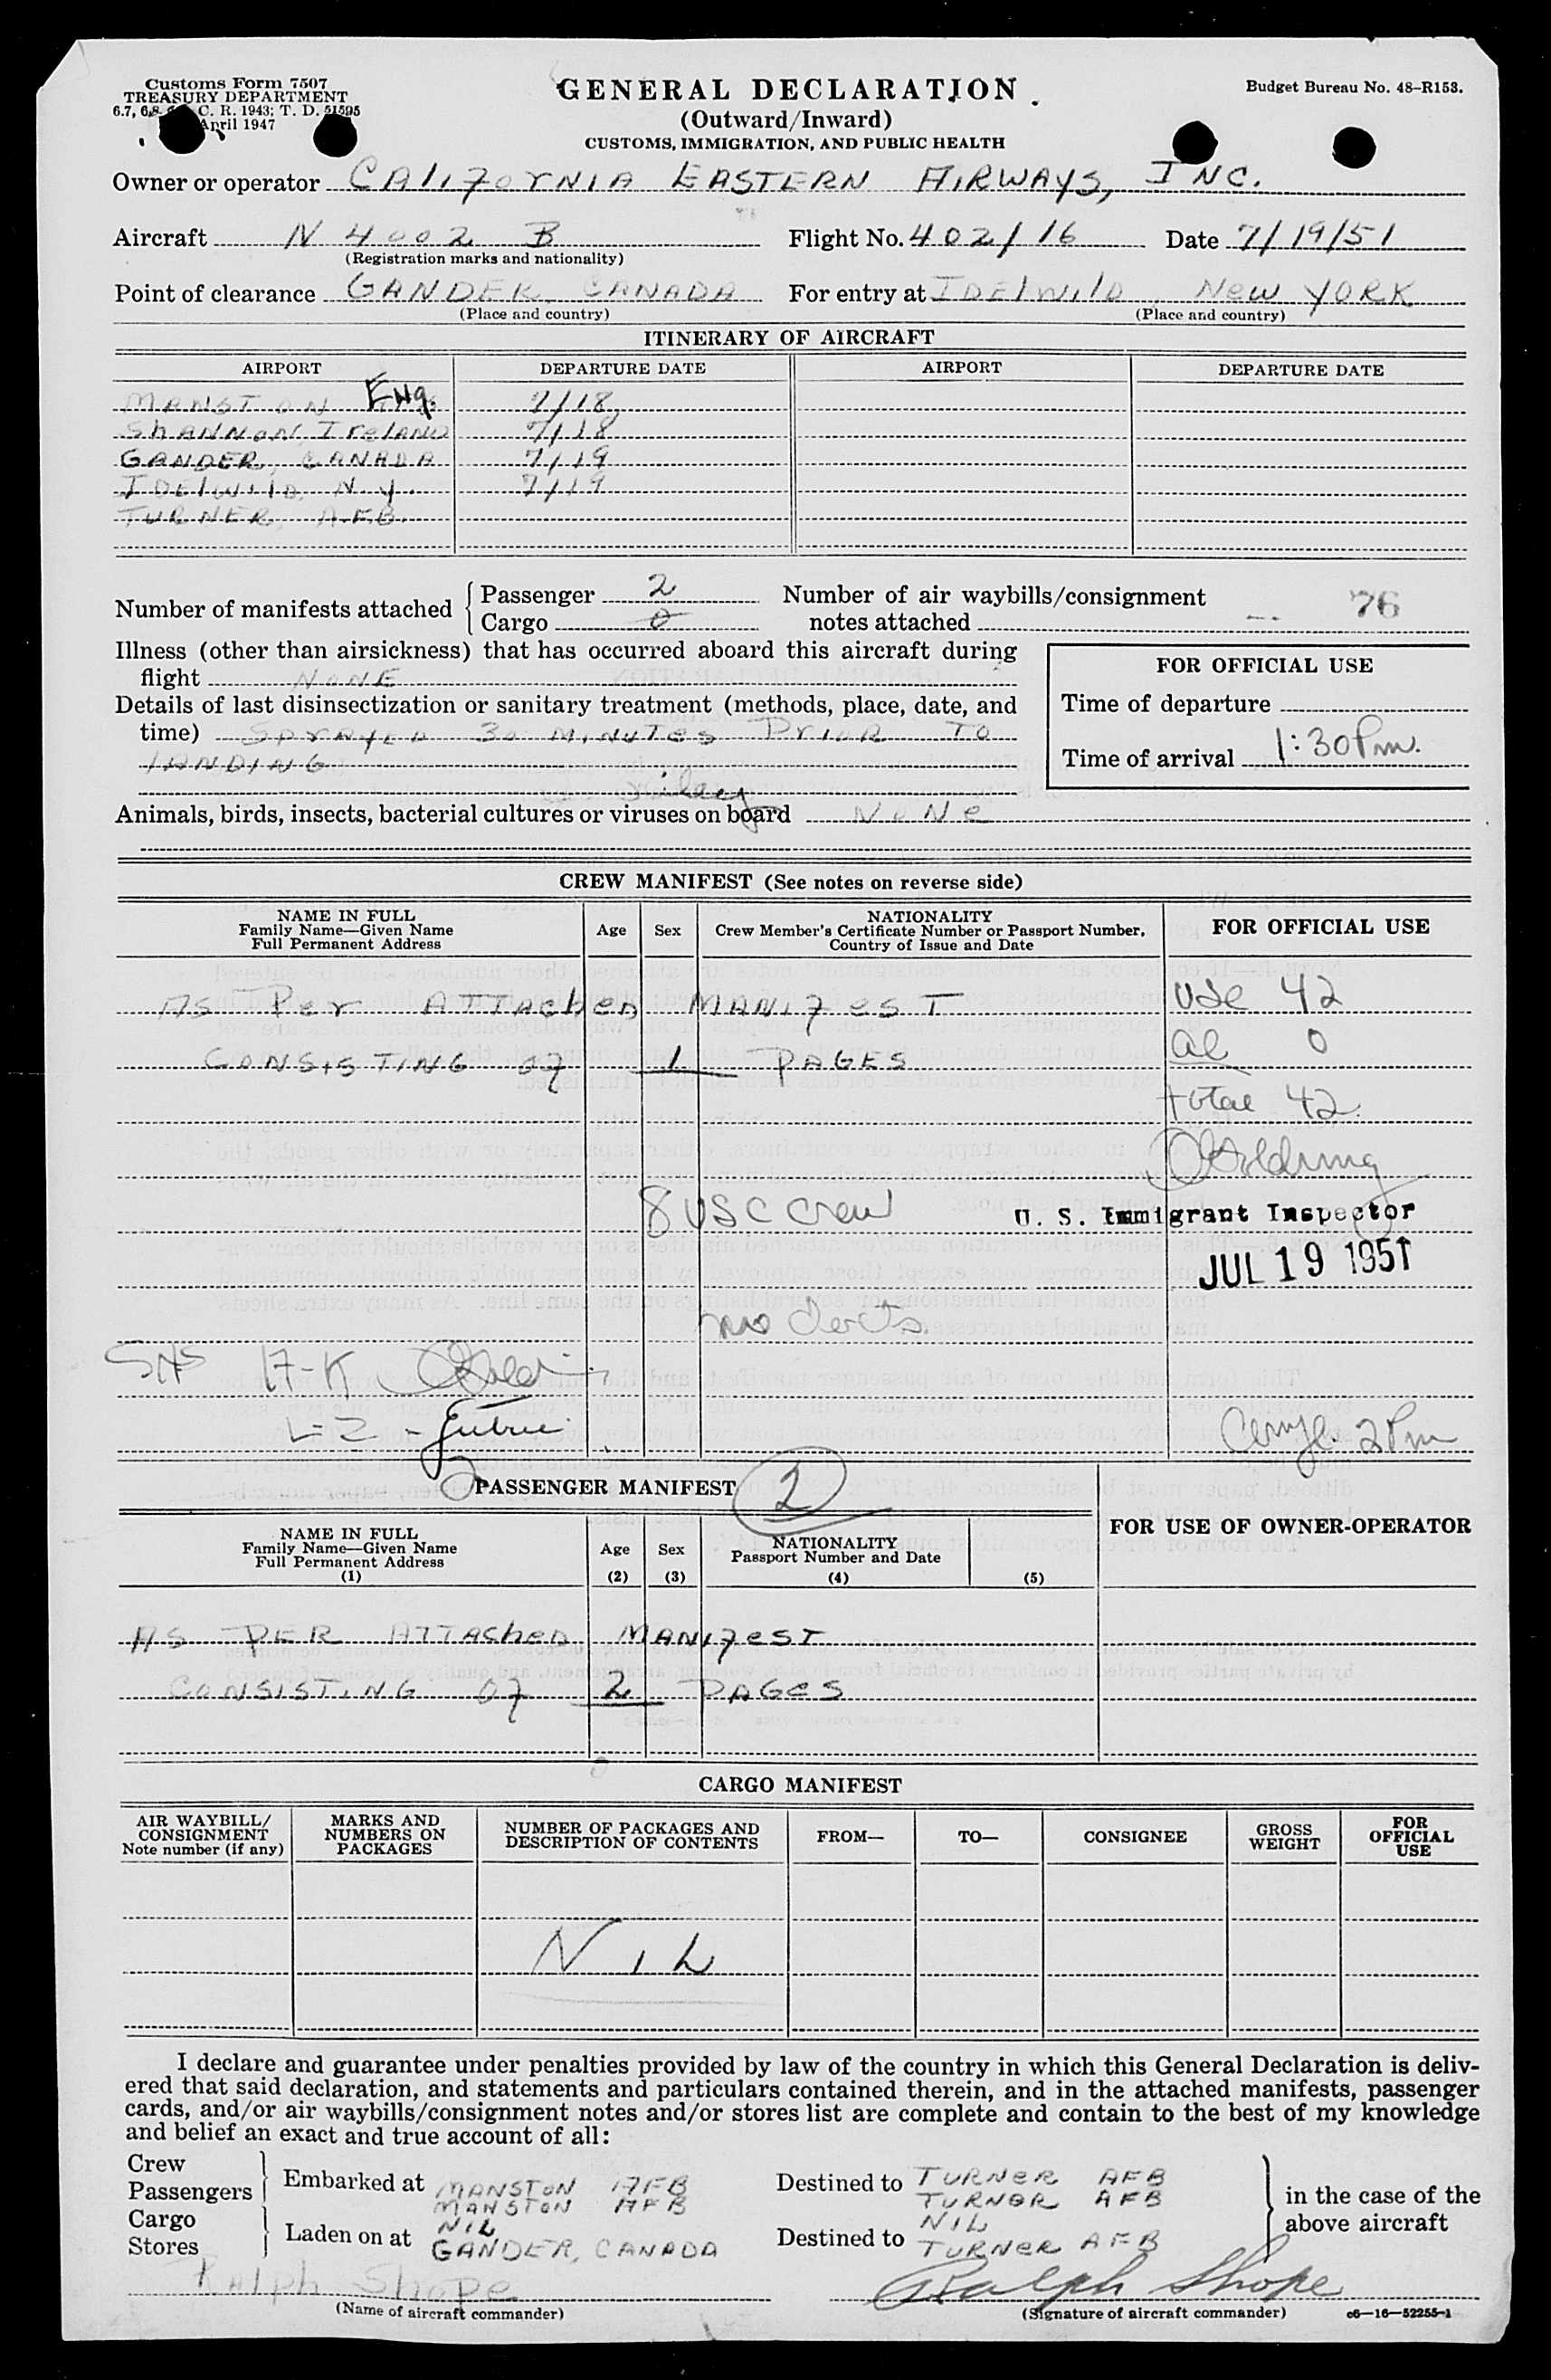 Customs Form 7507
TREASURY DEPARTMENT
C. R. 1943; T. D. 51595
April 1947
GENERAL DECLARATION
(Outward/Inward)
CUSTOMS, IMMIGRATION, AND PUBLIC HEALTH
Budget Bureau No. 48-R153.
Owner or operator CALIFORNIA EASTERN AIRWAYS, INC.
Aircraft N 4002 B Flight No. 402/16 Date 7/19/51
(Registration marks and nationality)
Point of clearance GANDER, CANADA For entry at IDElwIlD, NEW YORK
(Place and country) (Place and country)
ITINERARY OF AIRCRAFT
AIRPORT DEPARTURE DATE AIRPORT DEPARTURE DATE
MANSTON Eng. 7/18
SHANNON, IreLAND 7/18
GANDER, CANADA 7/19
IDElwIlD, N.Y. 7/19
TURNER, AFB.
Number of manifests attached { Passenger 2 Number of air waybills/consignment
Cargo 0 notes attached 76
Illness (other than airsickness) that has occurred aboard this aircraft during
flight NONE
FOR OFFICIAL USE
Details of last disinsectization or sanitary treatment (methods, place, date, and
time) SprAyeD 30 MINUTes PrIOR TO
LANDING
Time of departure
Time of arrival 1:30 Pm.
Animals, birds, insects, bacterial cultures or viruses on board NoNe
CREW MANIFEST (See notes on reverse side)
NAME IN FULL
Family Name—Given Name
Full Permanent Address
Age Sex
NATIONALITY
Crew Member's Certificate Number or Passport Number,
Country of Issue and Date
FOR OFFICIAL USE
AS Per ATTAcheD MANIfesT
CONSISTING of 1 PAGES
USC 42
al 0
total 42
8 USC crew
U. S. Immigrant Inspector
JUL 19 1951
no docts.
17-K
L-2 -
2 Pm
PASSENGER MANIFEST 2
NAME IN FULL
Family Name—Given Name
Full Permanent Address
(1)
Age
(2)
Sex
(3)
NATIONALITY
Passport Number and Date
(4) (5)
FOR USE OF OWNER-OPERATOR
AS PER ATTACheD MANIfesT
CONSISTING of 2 PAGeS
CARGO MANIFEST
AIR WAYBILL/
CONSIGNMENT
Note number (if any)
MARKS AND
NUMBERS ON
PACKAGES
NUMBER OF PACKAGES AND
DESCRIPTION OF CONTENTS
FROM— TO— CONSIGNEE
GROSS
WEIGHT
FOR
OFFICIAL
USE
NIL
I declare and guarantee under penalties provided by law of the country in which this General Declaration is deliv-
ered that said declaration, and statements and particulars contained therein, and in the attached manifests, passenger
cards, and/or air waybills/consignment notes and/or stores list are complete and contain to the best of my knowledge
and belief an exact and true account of all:
Crew
Passengers
Embarked at MANSTON AFB
MANSTON AFB
Destined to TURNeR AFB
TURNeR AFB
Cargo
Stores
Laden on at NIL
GANDER, CANADA
Destined to NIL
TURNeR AFB
in the case of the
above aircraft
Ralph Shope Ralph Shope
(Name of aircraft commander) (Signature of aircraft commander) c6—16—52255-1